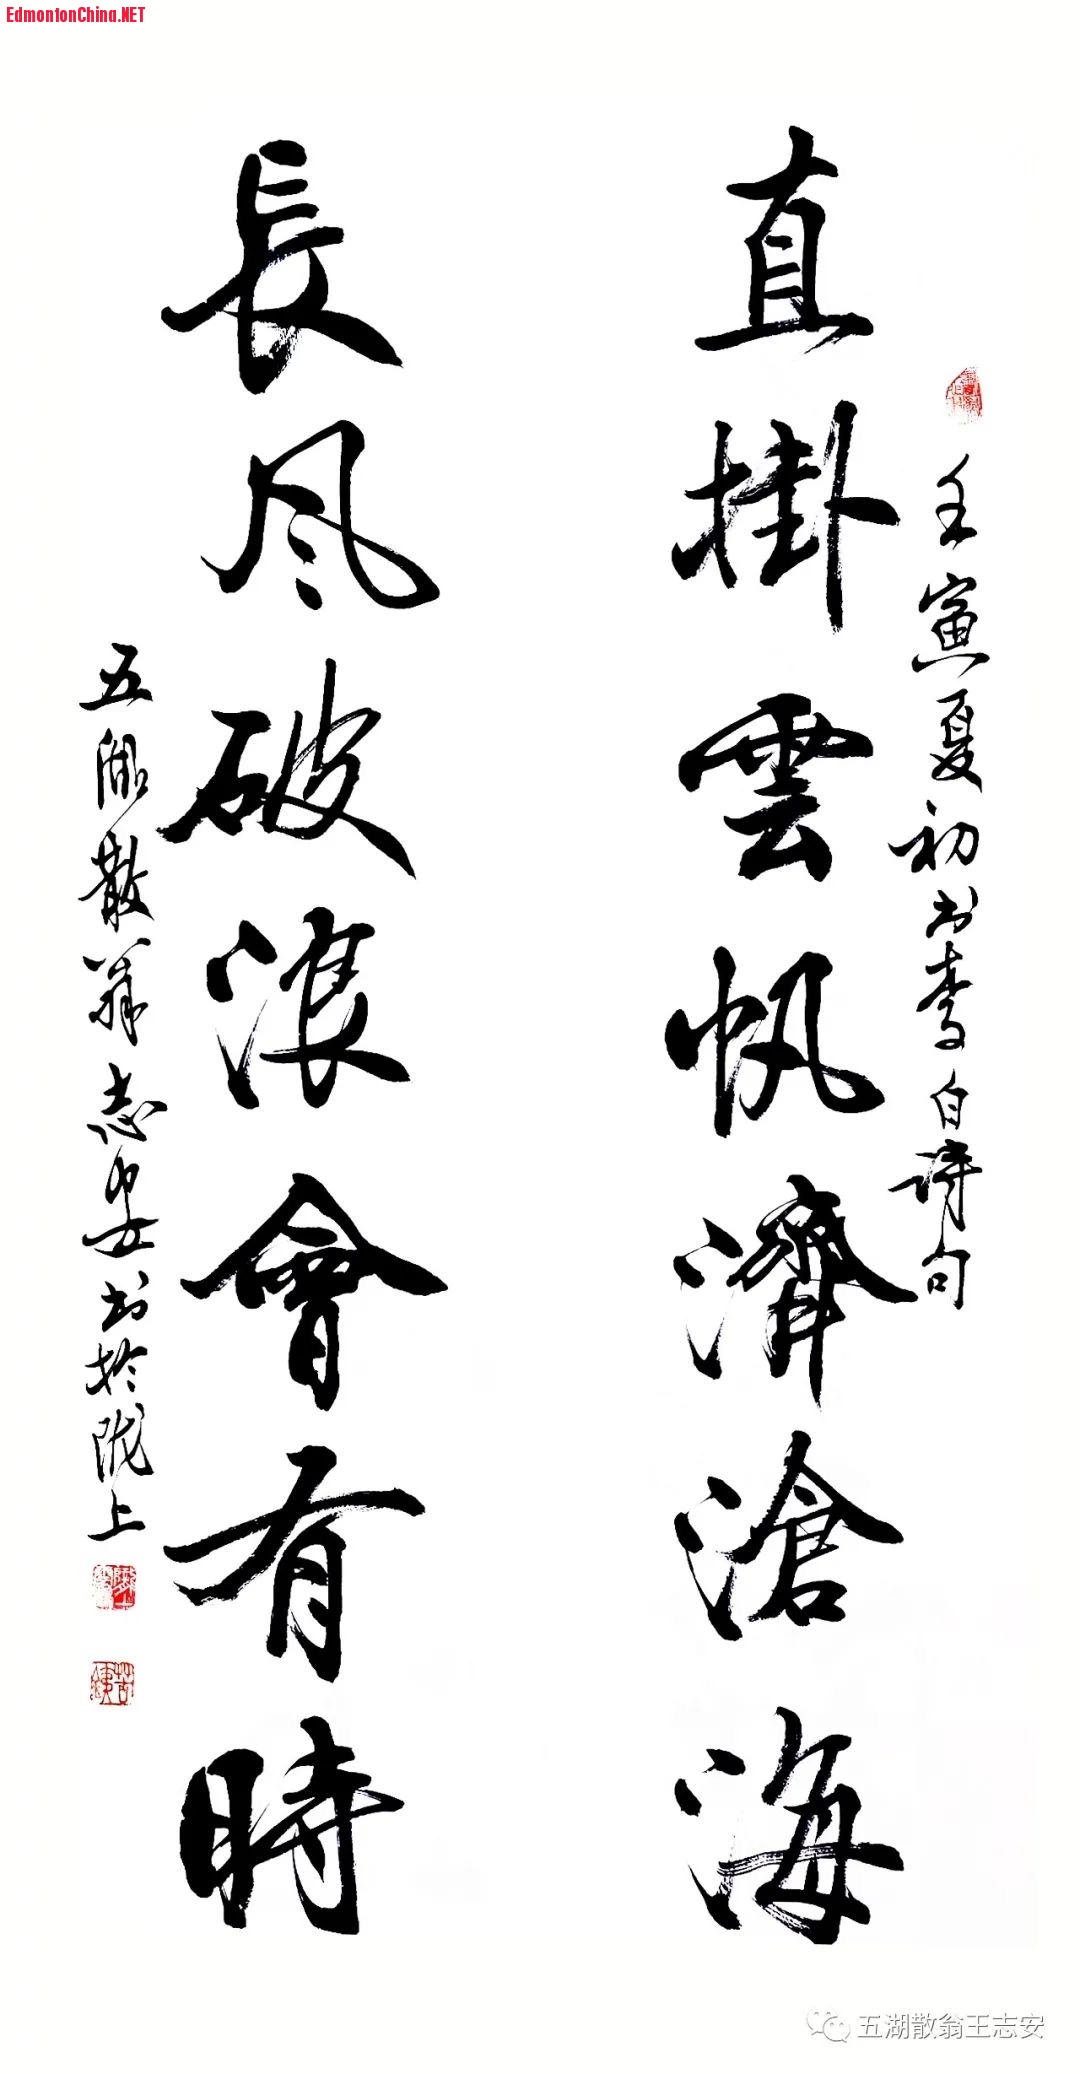 EdmontonChina.NET
壬寅夏初书李白诗句
直掛雲帆濟滄海
長风破浪會有時
五湖散翁志安书於陇上
五湖散翁王志安